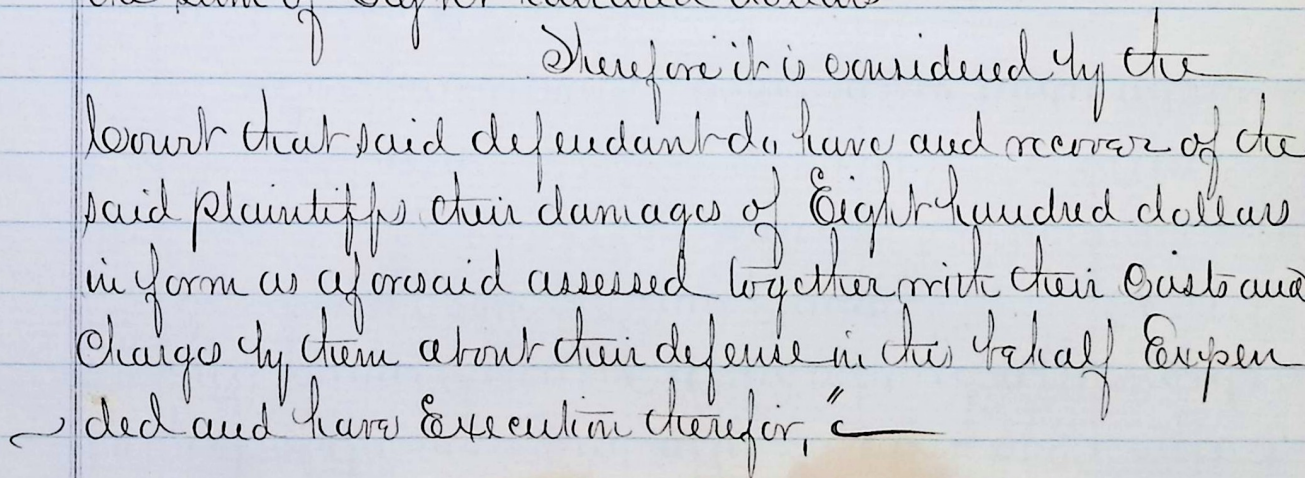 the sum of Eight hundred dollars
Therefore it is considered by the
Court that said defendant do have and recover of the
said plaintiffs their damages of Eight hundred dollars
in form as aforesaid assessed together with their Costs and
Charges by them about their defense in this behalf Expen
ded and have Execution therefor, "